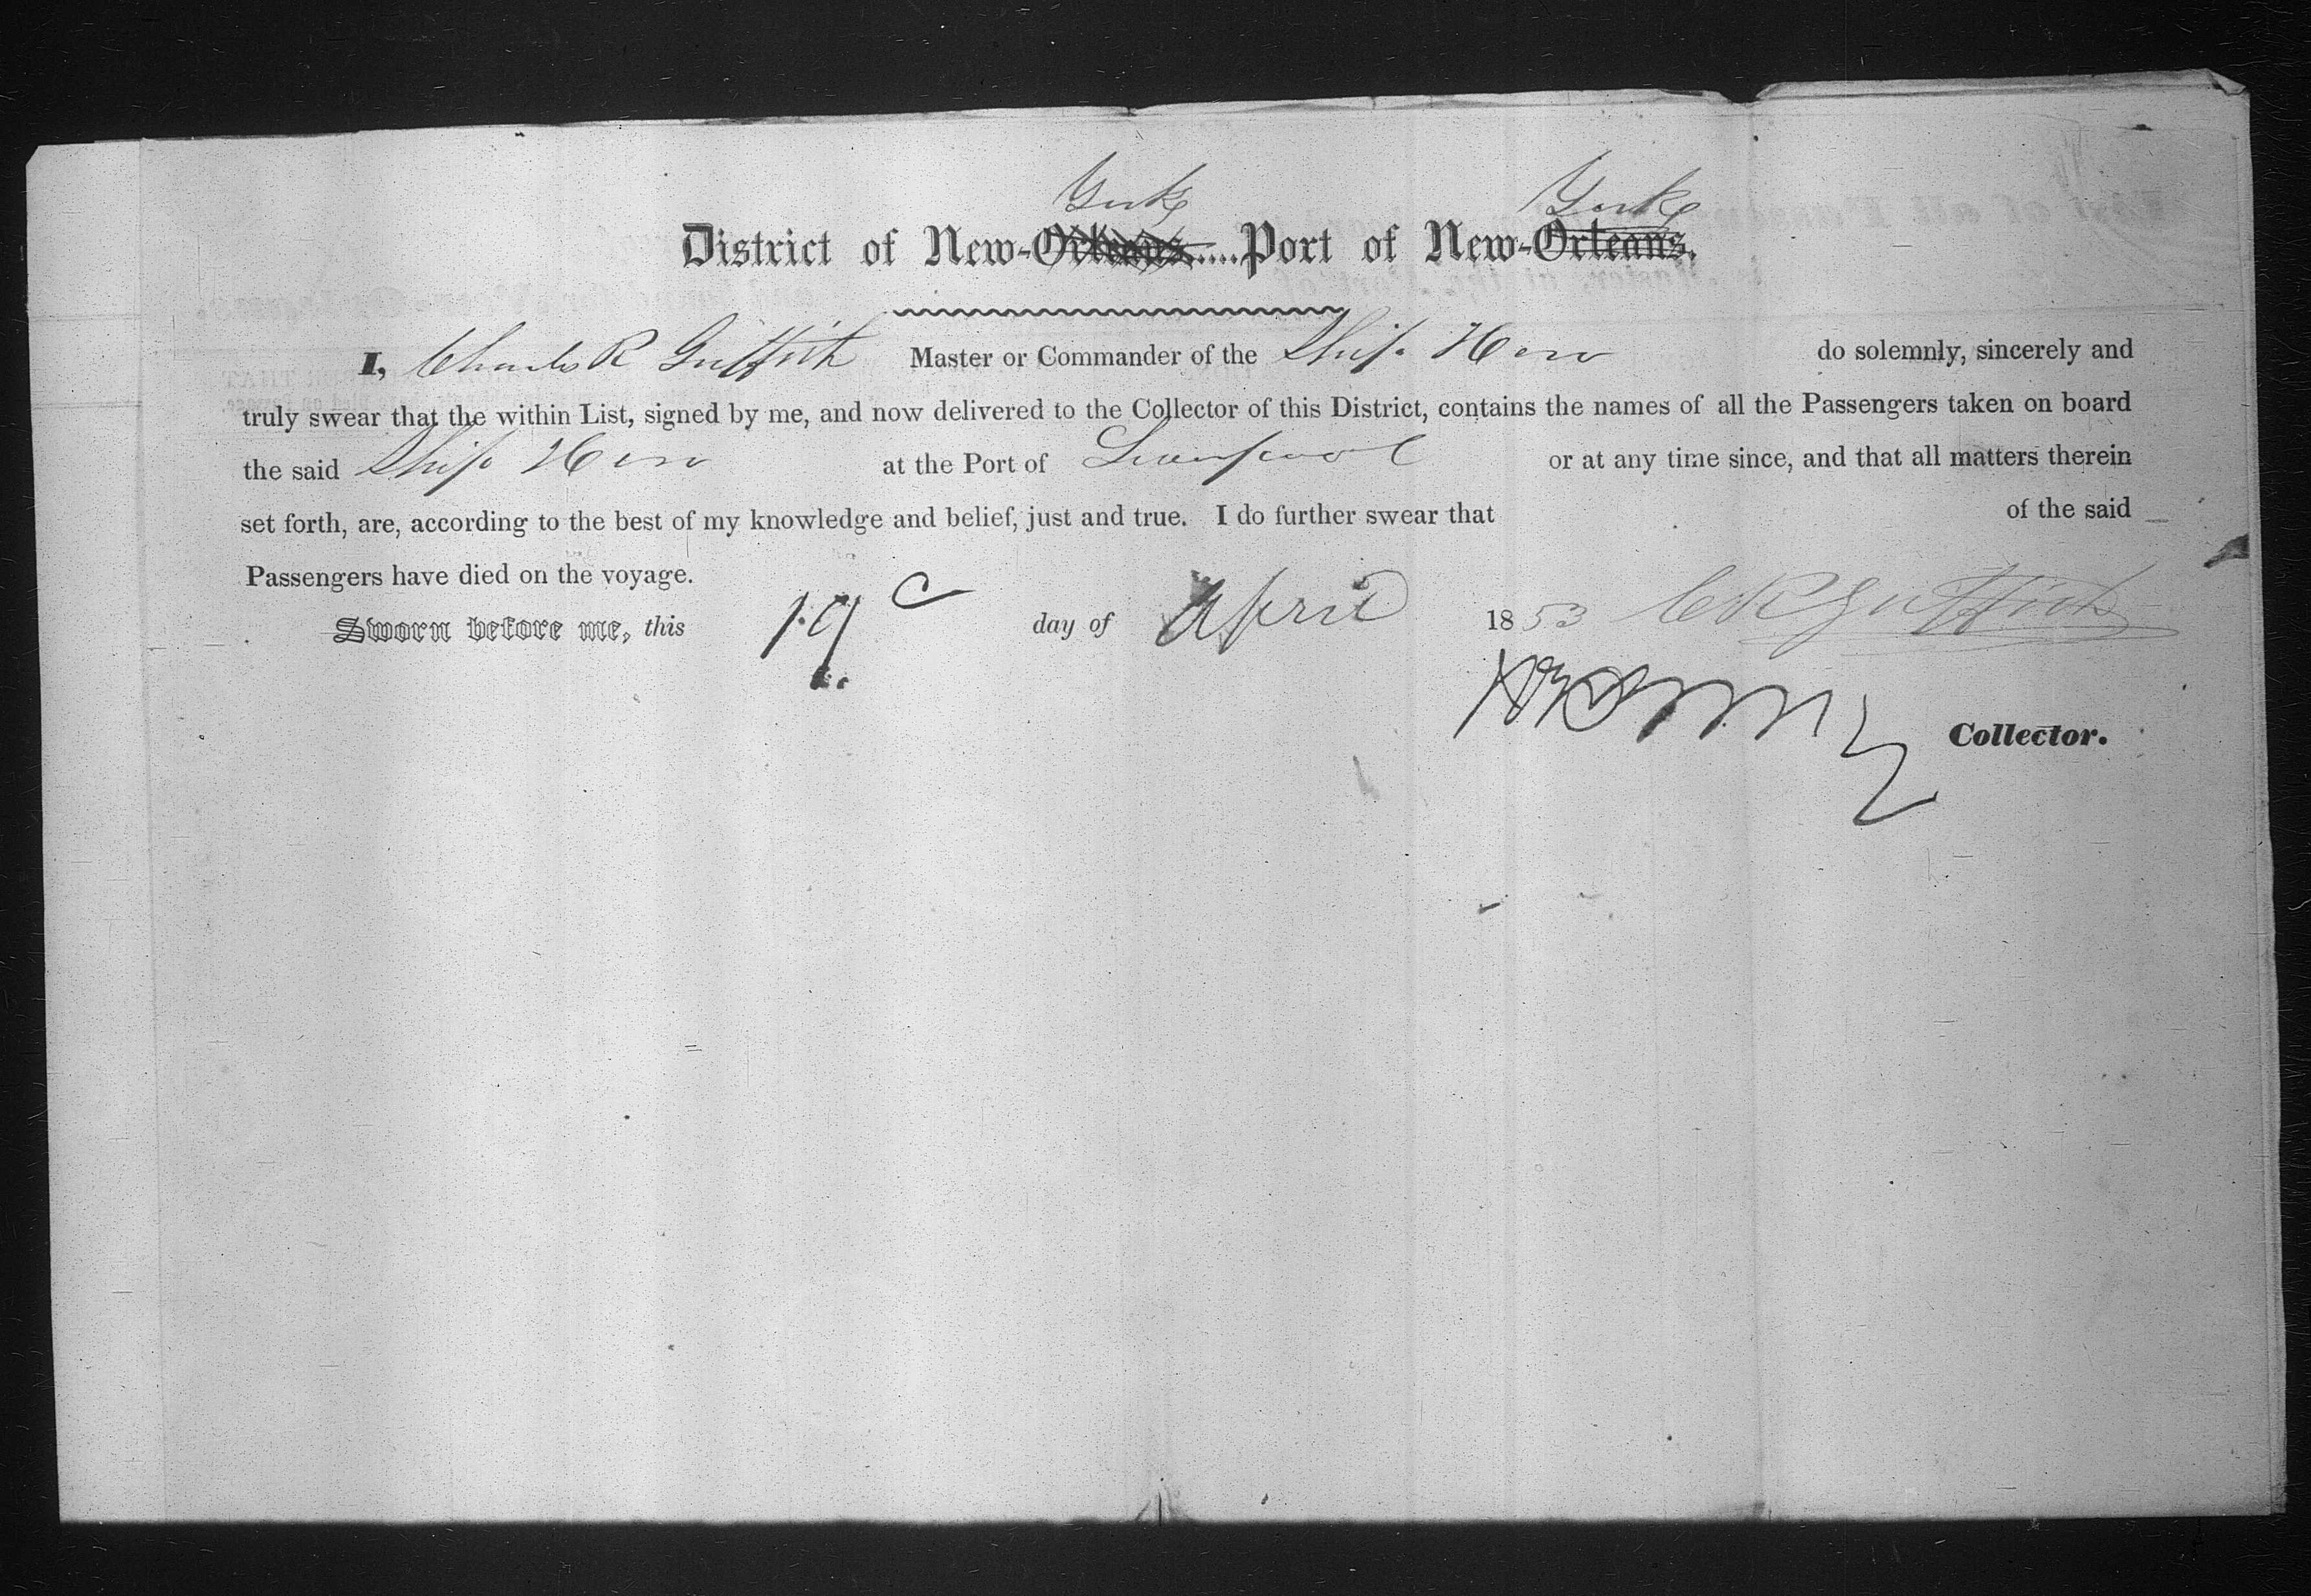 York York
District of New-Orleans.....Port of New-Orleans.
I, Charles R Griffith Master or Commander of the Ship Hero do solemnly, sincerely and
truly swear that the within List, signed by me, and now delivered to the Collector of this District, contains the names of all the Passengers taken on board
the said Ship Hero at the Port of Liverpool or at any time since, and that all matters therein
set forth, are, according to the best of my knowledge and belief, just and true. I do further swear that of the said
Passengers have died on the voyage.
Sworn before me, this 19 day of April 1853 C R Griffith
Collector.